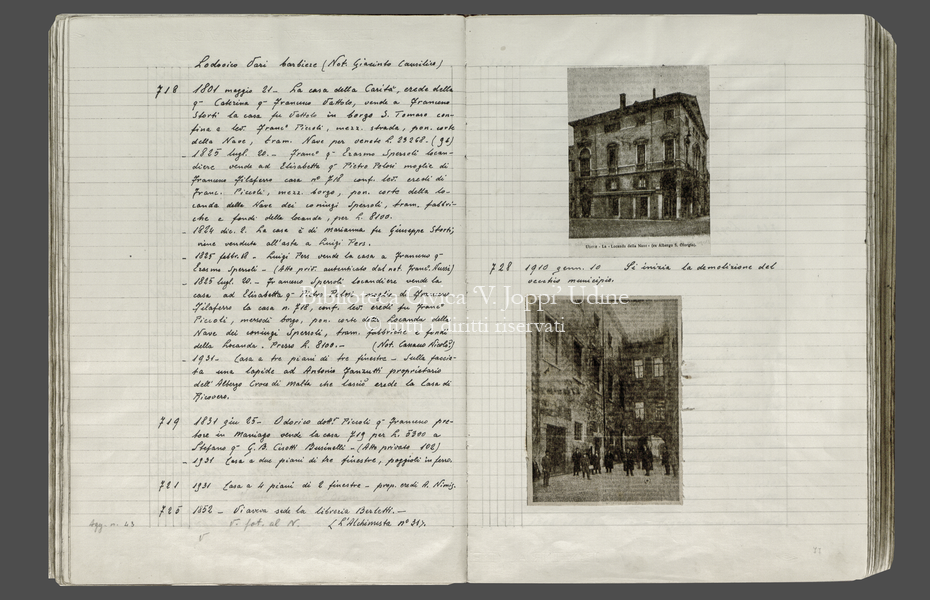 Lodovico Vari barbiere (Not. Giacinto
718 1801 maggio 21 - La casa della Carità, erede della
q.m Caterina q.m Francesco Vattolo, vende a Francesco
Storti la casa fu Vattolo in borgo S. Tomaso con-
fina a lev. Franc.o Piccoli, mezz. strada, pon. corte
della Nave, tram. Nave per venete L. 29268. (92)
1825 lugl. 20. - Franc.o q.m Erasmo Sperotti locan-
diere vende ad Elisabetta q.m Pietro Pelosi moglie di
Francesco Filaferro casa n.o 718 conf. lev. eredi di
Franc. Piccoli, mezz. borgo, pon. corte della lo-
canda della Nave dei coniugi Sperotti, tram. fabbri-
che e fondi della locanda, per L. 8100.
1824 dic. 2. La casa è di Marianna fu Giuseppe Storti;
viene venduta all'asta a Luigi Pers.
- 1825 febbr. 18 - Luigi Pers vende la casa a Francesco q.m
Erasmo Sperotti - (Atto priv. autenticato dal not. Franc.
- 1825 lugl. 20. - Francesco Sperotti locandiere vende la
casa ad Elisabetta q.m Pietro Pelosi moglie di Francesco
Filaferro la casa n. 718, conf. lev. eredi fu Franc.o
Piccoli, mezzodì borgo, pon. corte della Locanda della
Nave dei coniugi Sperotti, tram. fabbriche e fondi
della Locanda. Prezzo L. 8100. - (Not. Cassano Nicolò)
- 1931 - Casa a tre piani di tre finestre - Sulla faccia-
ta una lapide ad Antonio Fanzutti proprietario
dell'Albergo Croce di Malta che lasciò erede la Casa di
Ricovero.
719 1831 giu 25 - Odorico dott. Piccoli q.m Francesco pre-
tore in Maniago vende la casa 719 per L. 5300 a
Stefano q.m G. B. Cisotti Businelli - (Atto privato 102)
- 1931 Casa a due piani di tre finestre, poggioli in ferro.
721 1931 Casa a 4 piani di 2 finestre - prop. eredi A. Nimis.
725 1852 - Vi aveva sede la libreria Berletti. -
Agg. n. 43 V. fot. al N. (L'Alchimista n.o 31).
UDINE - La "Locanda della Nave" (ex Albergo S. Giorgio).
728 1910 genn. 10 Si inizia la demolizione del
vecchio municipio.
Biblioteca Civica 'V. Joppi' Udine
© tutti i diritti riservati